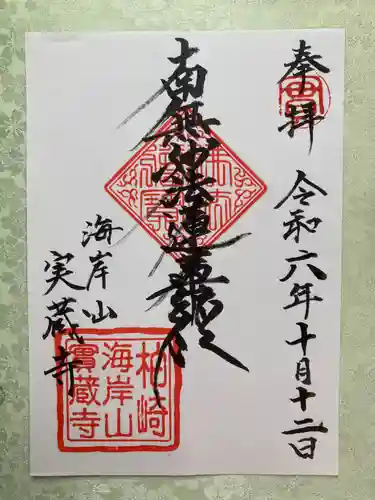 奉拝
令和六年十月十二日
南無妙法蓮華経
海岸山
実蔵寺
柏崎
海岸山
實蔵寺